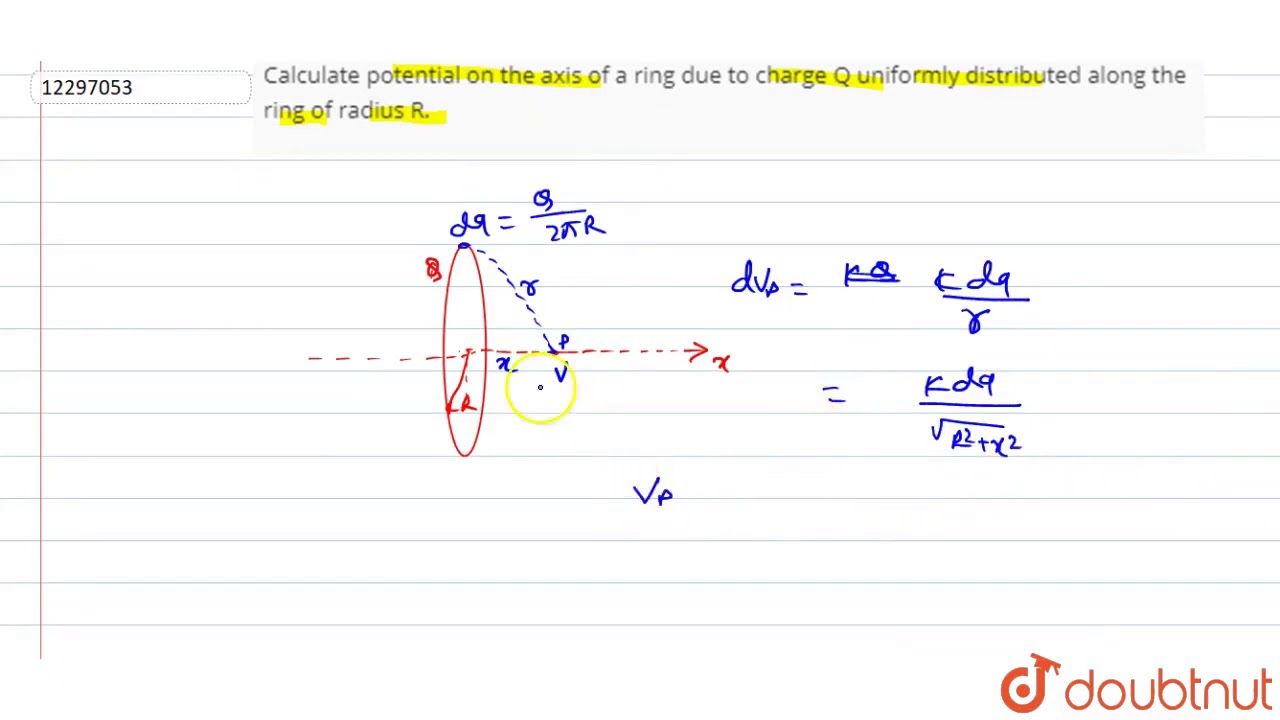 12297053
Calculate potential on the axis of a ring due to charge Q uniformly distributed along the
ring of radius R.
dq = Q / 2πR
Q
r
dVp = KQ K dq / r
P
x
V
x
R
= K dq / √R²+x²
Vp
doubtnut